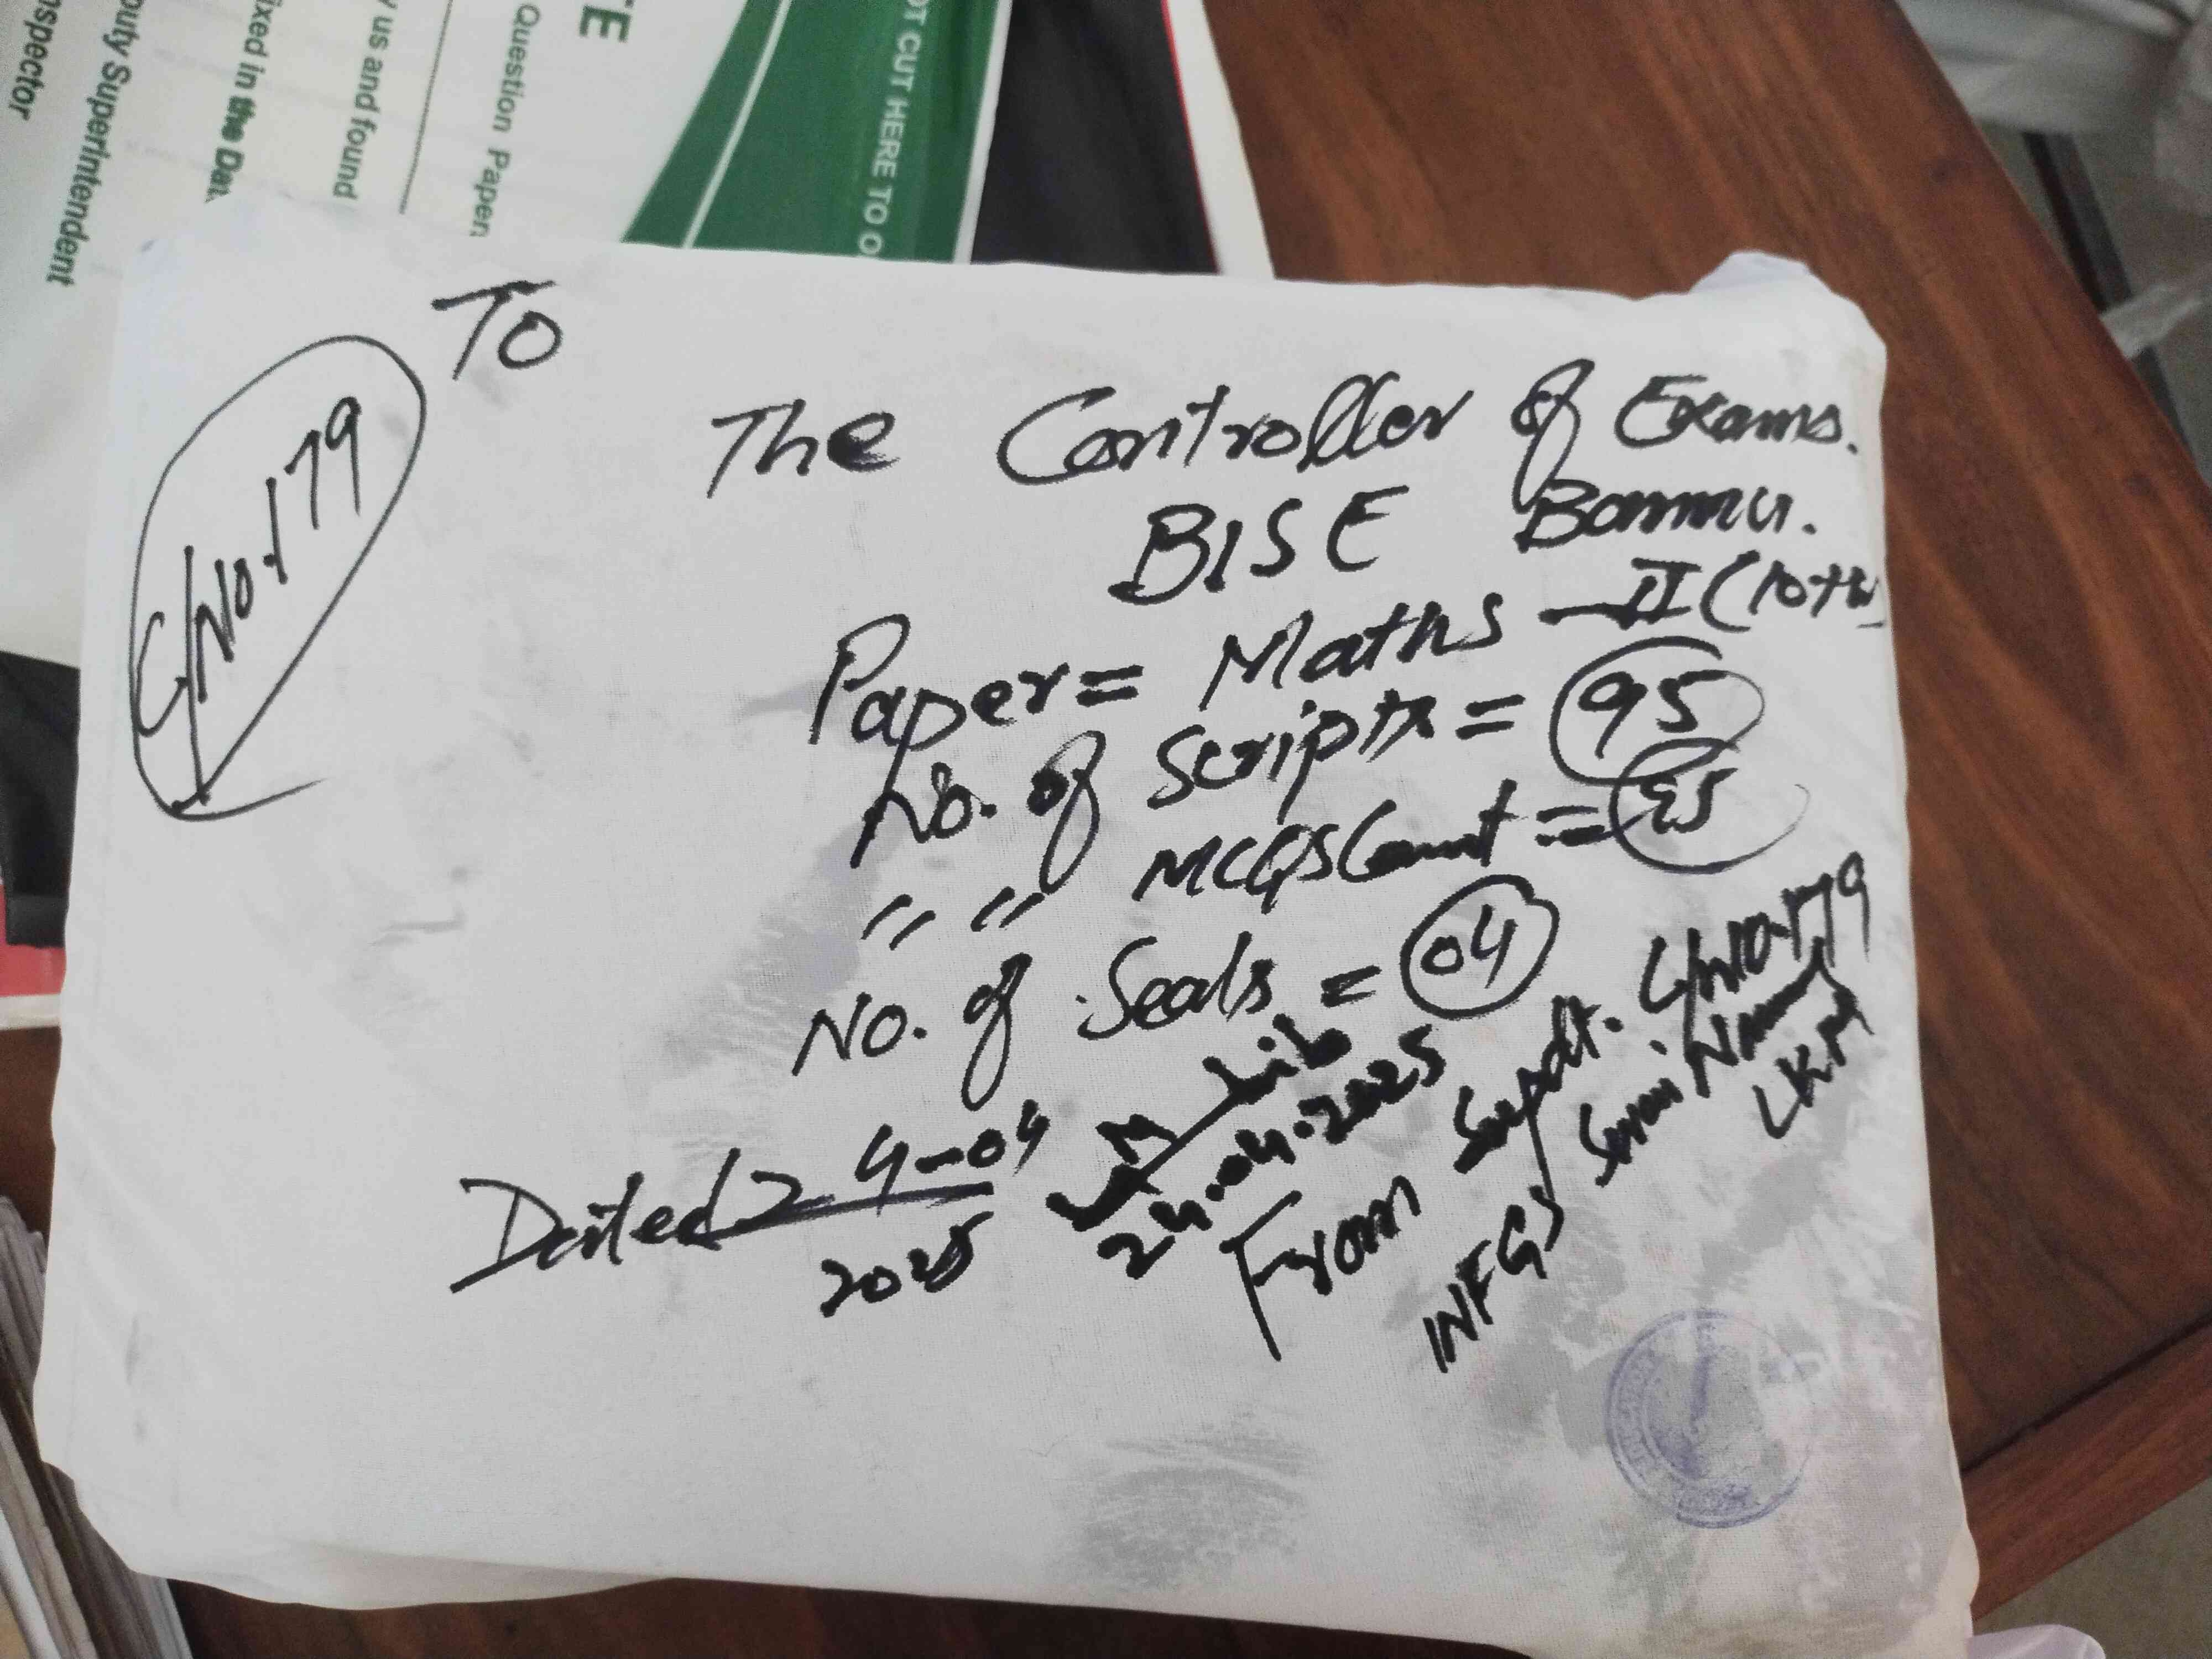 TE
Question Papers
OT CUT HERE TO O
y us and found
ixed in the Da
puty Superintendent
nspector
C/No.179
To
The Controller of Exams.
BISE Bannu.
Paper = Maths - II (10th
No. of Scripts = 95
" " MCQS Count = 95
No. of Seals = 04
Dated 24-04
2025
24.04.2025
From Supdt. C/No.179
INFGS Serai Naurang
LKM